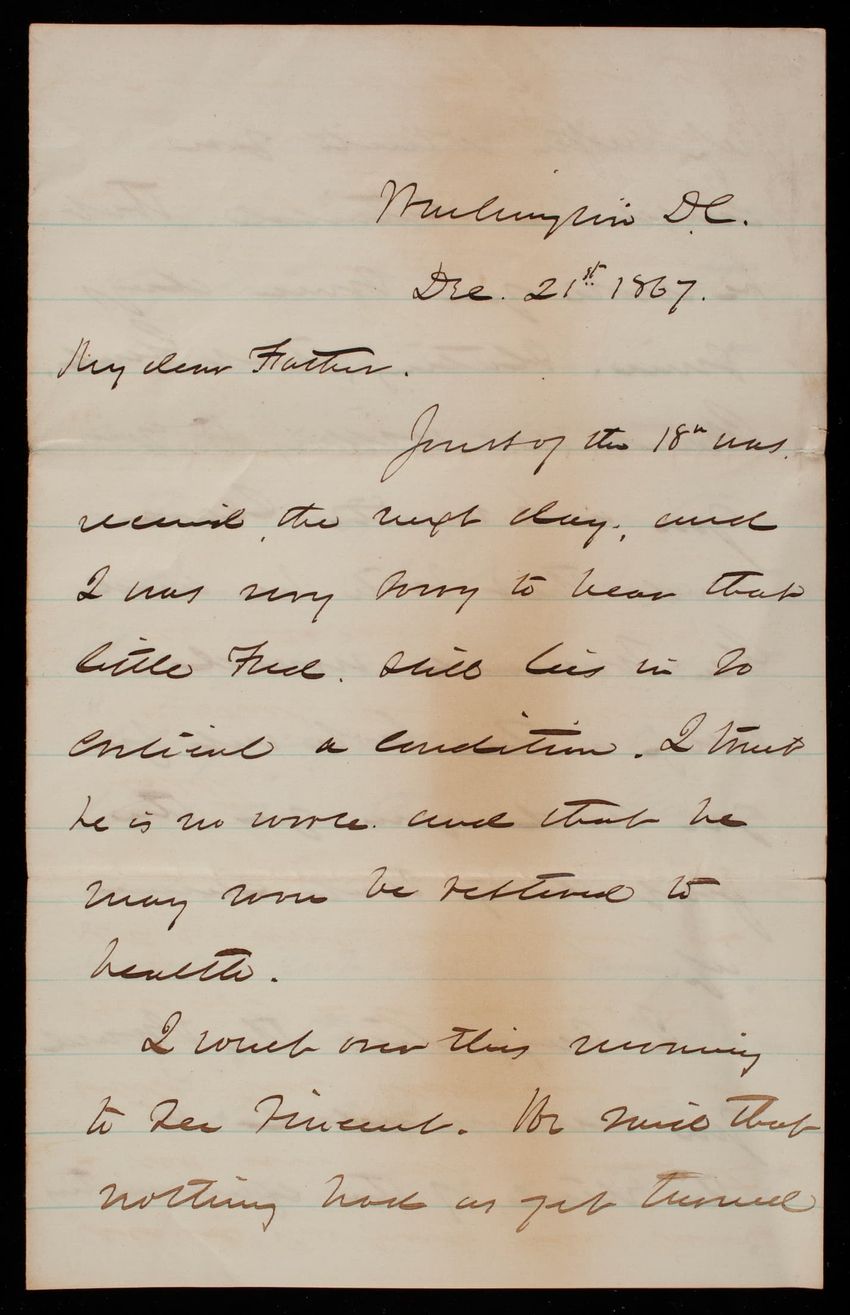 Washington D.C.
Dec. 21st 1867.
My dear Father.
Yours of the 18th was
received, the next day, and
I was very sorry to hear that
little Fred. still lies in so
critical a condition. I trust
he is no worse. and that he
may soon be restored to
health.
I went over this morning
to see Vincent. He said that
nothing had as yet turned